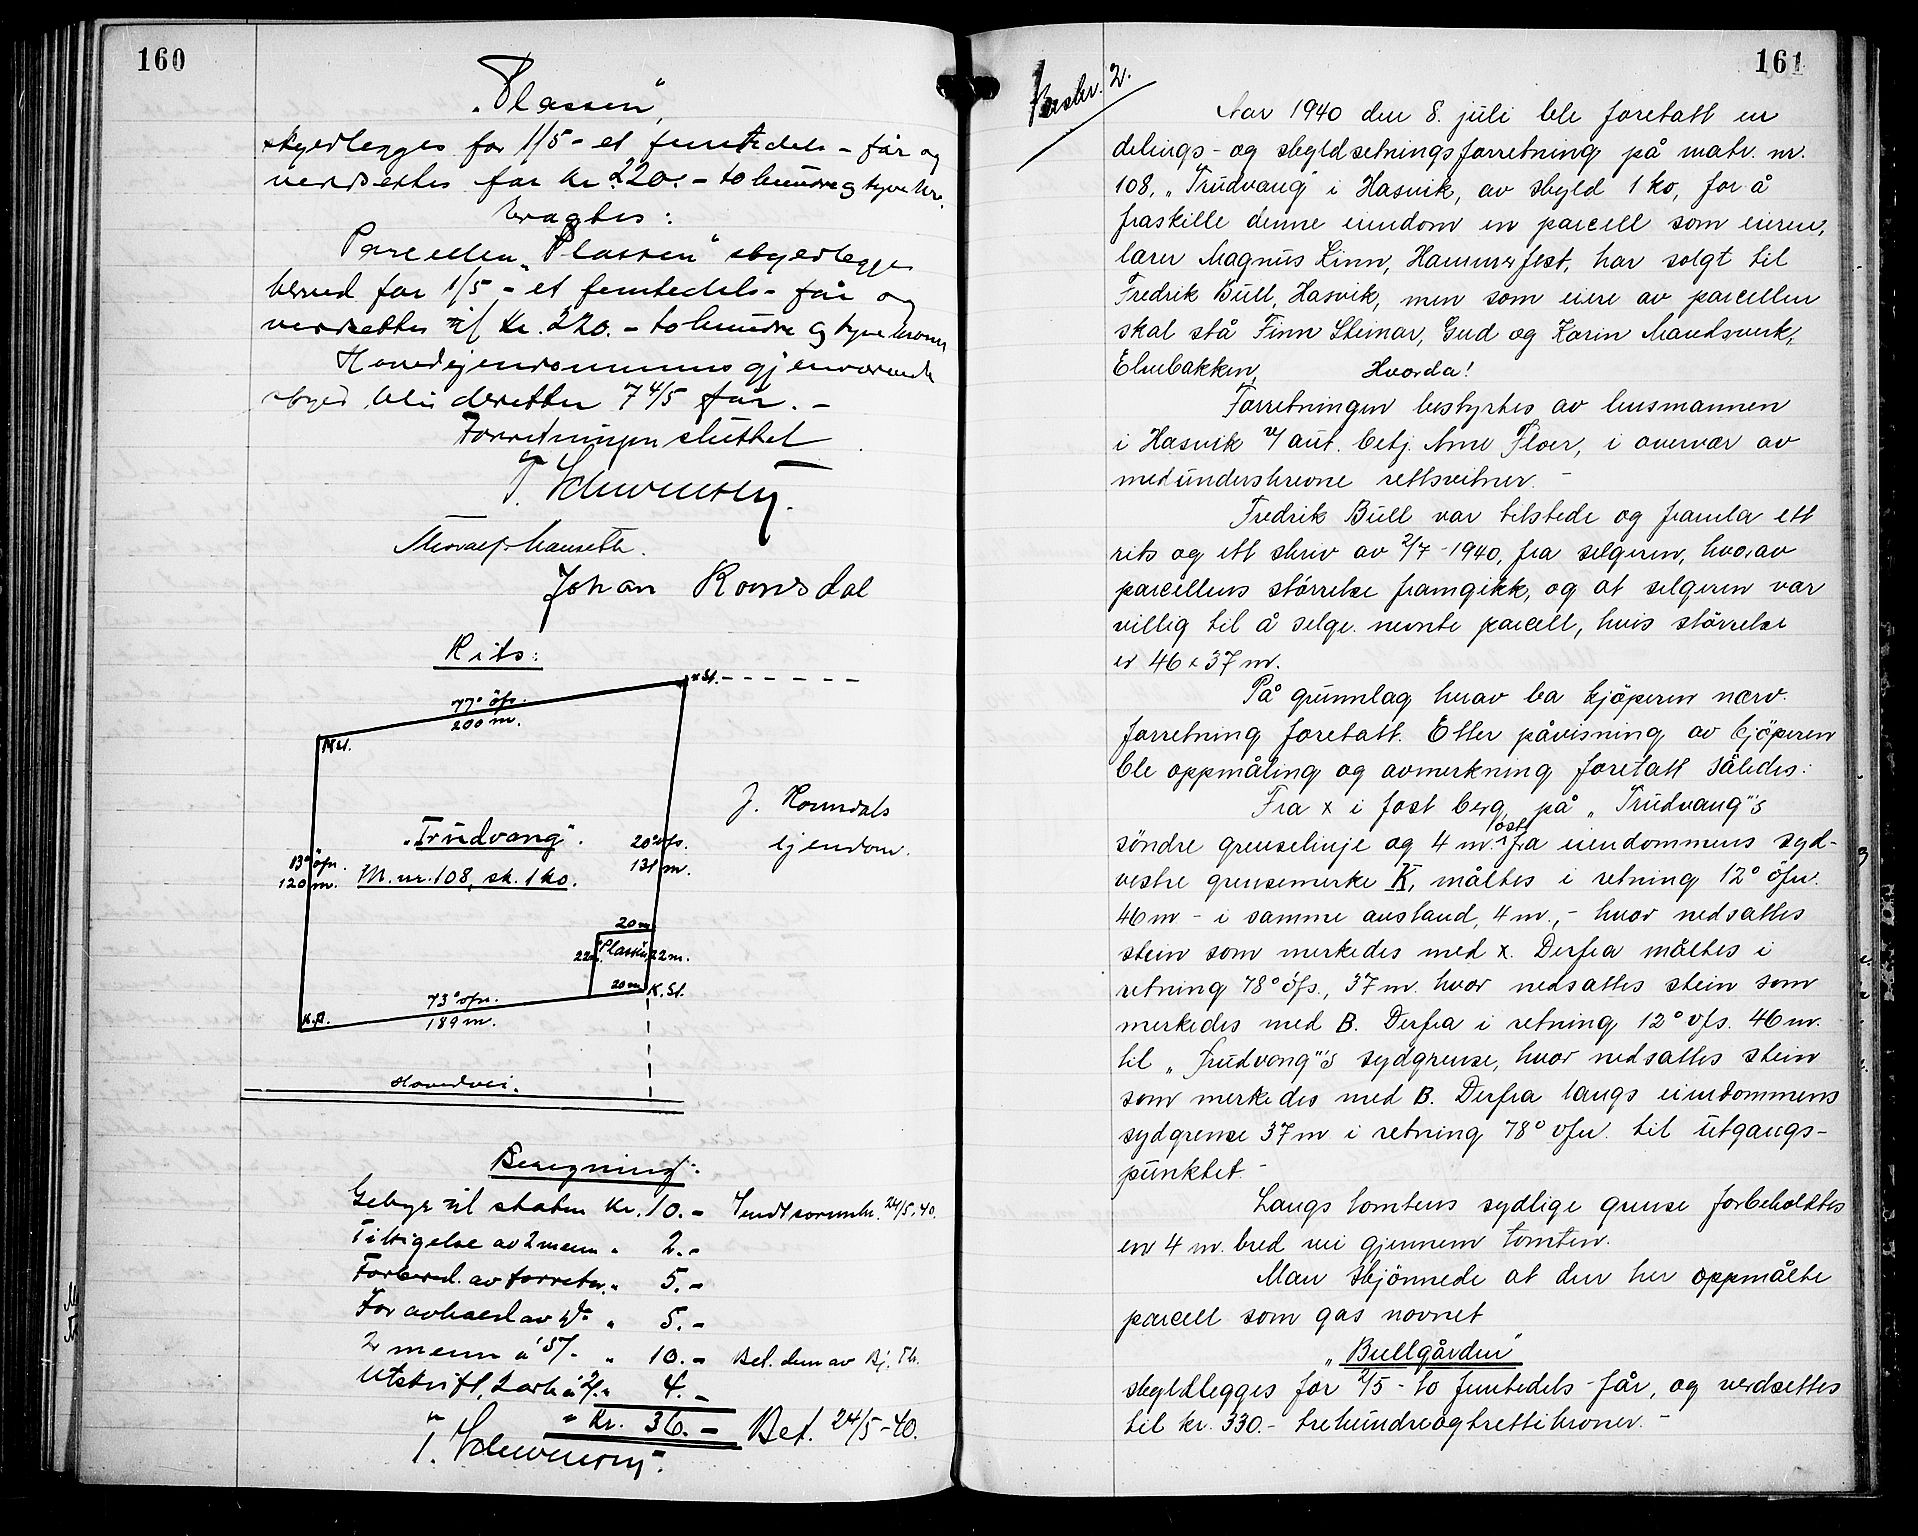 160
„Plassen“,
skyldlegges for 1/5 - et femtedels - får og
verdsettes for kr. 220.- to hundre og tyve kr.
bragtes:
Parcellen „Plassen“ skyldlegges
herved for 1/5 - et femtedels - får og
verdsettes til kr. 220.- to hundre og tyve kroner
Hovedejendommens gjenværende
skyld blir deretter 7 4/5 får. -
Forretningen sluttet
T. Schwensen.
Johan Romsdal
Rits:
77° öfs.
200 m.
x St.
K.St.
„Trudvang“.
M. nr. 108, sk. 1 ko.
13° öfn.
120 m.
20° vfs.
131 m.
J. Romsdals
ejendom.
20 m
22 m.
„Plassen“
22 m.
20 m
K. St.
73° vfn.
189 m.
K.B.
Hovedvei.
Beregning:
Gebyr til staten kr. 10.- Sendt sorenskr. 24/5-40.
Tilsigelse av 2 menn „ 2.-
Forbered. av forretn. „ 5.-
For avhold av do „ 5.-
2 menn á 5/- „ 10.- Bet. dem av Bj. Th.
Utskrift, 2 ark á 2/- „ 4.-
„ Kr. 36.- Bet. 24/5-40.
T. Schwensen.
161
Beskr. 2.
Aar 1940 den 8. juli ble foretatt en
delings- og skyldsetningsforretning på matr. nr.
108, „Trudvang“ i Hasvik, av skyld 1 ko, for å
fraskille denne eiendom en parcell som eieren,
lærer Magnus Linn, Hammerfest, har solgt til
Fredrik Bull, Hasvik, men som eiere av parcellen
skal stå Finn Steinar, Gud og Karin Mandsverk,
Elvebakken, Hvorda!
Forretningen bestyrtes av lensmannen
i Hasvik v/ aut. betj. Arne Floer, i overvær av
medunderskrevne rettsvitner. -
Fredrik Bull var tilstede og framla ett
rits og ett skriv av 2/7-1940, fra selgeren, hvorav
parcellens størrelse framgikk, og at selgeren var
villig til å selge nevnte parcell, hvis størrelse
er 46 x 37 m.
På grunnlag herav ba kjøperen nærv.
forretning foretatt. Etter påvisning av kjøperen
ble oppmåling og avmerkning foretatt således:
Fra x i fast berg på „Trudvang“'s
søndre grenselinje og 4 m. øst fra eiendommens syd-
vestre grensemerke K, måltes i retning 12° öfn.
46 m - i samme avstand, 4 m., - hvor nedsattes
stein som merkedes med x. Derfra måltes i
retning 78° öfs., 37 m. hvor nedsattes stein som
merkedes med B. Derfra i retning 12° vfs. 46 m.
til „Trudvang“'s sydgrense, hvor nedsattes stein
som merkedes med B. Derfra langs eiendommens
sydgrense 37 m i retning 78° vfn. til utgangs-
punktet. -
Langs tomtens sydlige grense forbeholdtes
en 4 m. bred vei gjennem tomten.
Man skjønnede at den her oppmålte
parcell som gas navnet
„Bullgården“
skyldlegges for 2/5 - to femtedels - får, og verdsettes
til kr. 330.- trehundreogtrettikroner. -